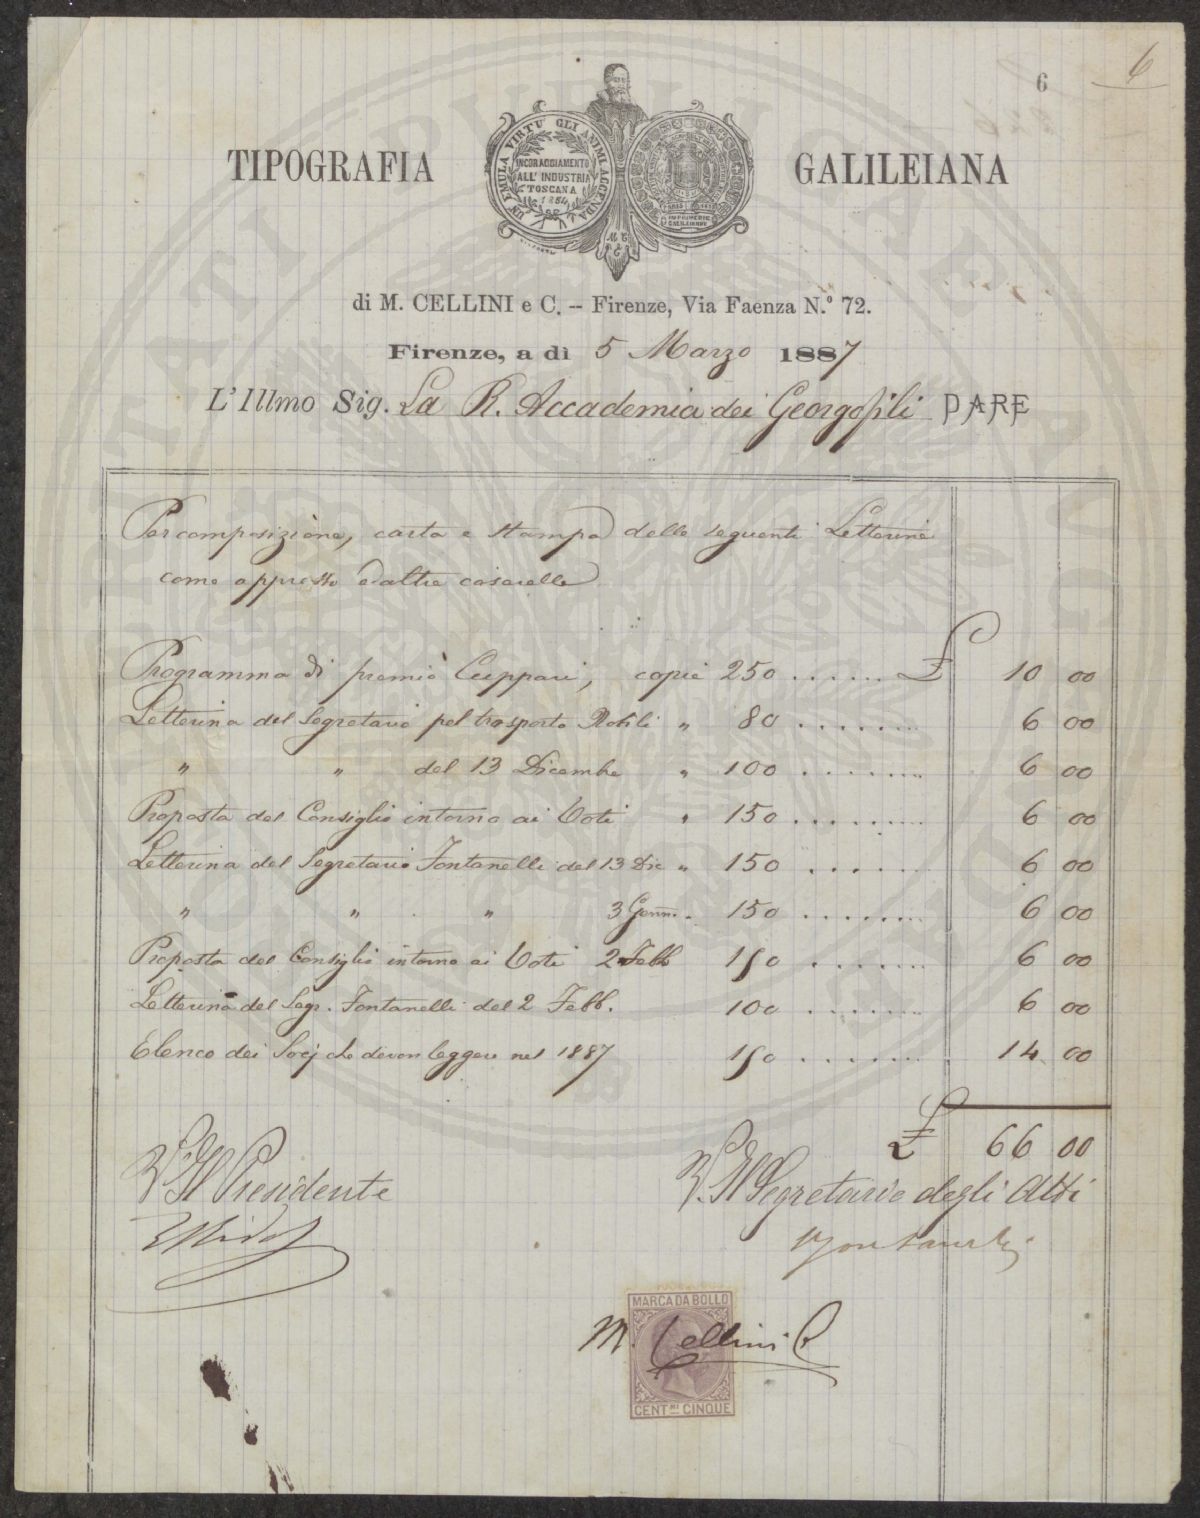 6
6
TIPOGRAFIA GALILEIANA
UN EMULA VIRTU' GLI ANIMI ACCENDA
INCORAGGIAMENTO
ALL'INDUSTRIA
TOSCANA
1854
IMPRIMERIE
GALILEIENNE
di M. CELLINI e C. – Firenze, Via Faenza N.º 72.
Firenze, a dì 5 Marzo 1887
L'Illmo Sig. La R. Accademia dei Georgofili DARE
Per composizione, carta e stampa delle seguenti Letterine
come appresso ed altre coserelle
Programma di premio Cuppari, copie 250 ...... £ 10 00
Letterina del Segretario pel trasporto Ridolfi " 80 ....... 6 00
" " del 13 Dicembre " 100 ....... 6 00
Proposta del Consiglio intorno ai Voti " 150 ....... 6 00
Letterina del Segretario Fontanelli del 13 Dic " 150 ....... 6 00
" " " 3 Genn. " 150 ....... 6 00
Proposta del Consiglio intorno ai Voti 2 Febb 150 ....... 6 00
Letterina del Segr. Fontanelli del 2 Febb. 100 ....... 6 00
Elenco dei Socj che devon leggere nel 1887 150 ....... 14 00
£ 66 00
V. Il Presidente
V. Il Segretario degli Atti
MARCA DA BOLLO
M. Cellini C
CENT.MI CINQUE